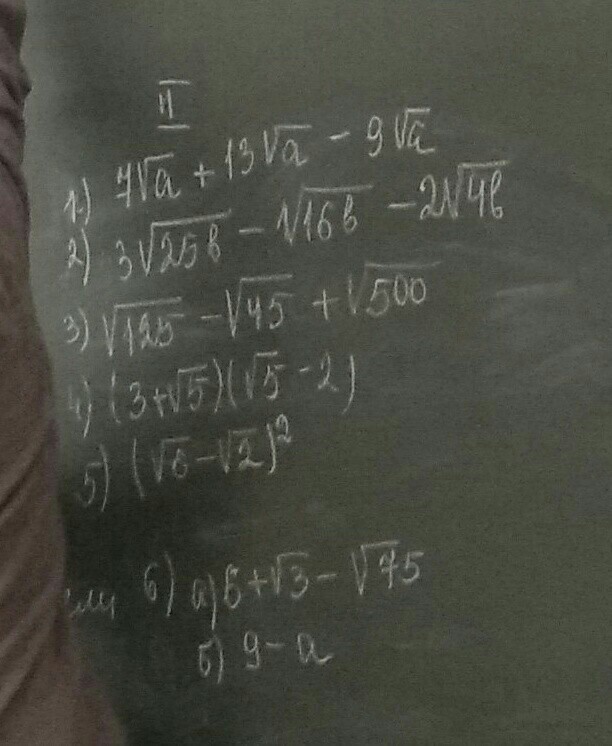 II
1) 7√a + 13√a - 9√a
2) 3√25b - √16b - 2√4b
3) √125 - √45 + √500
4) (3+√5)(√5-2)
5) (√6-√2)²
6) а) 5+√3 - √75
б) 9-a